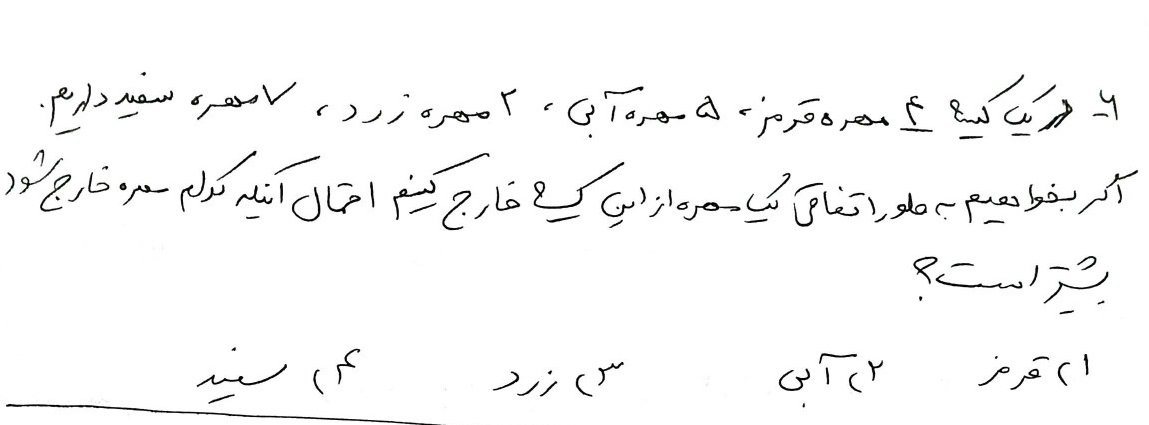 ۶- در یک کیسه ۴ مهره قرمز، ۵ مهره آبی، ۲ مهره زرد، ۷ مهره سفید داریم.
اگر بخواهیم به طور اتفاقی یک مهره از این کیسه خارج کنیم احتمال آنکه کدام مهره خارج شود
بیشتر است؟
۱) قرمز ۲) آبی ۳) زرد ۴) سفید